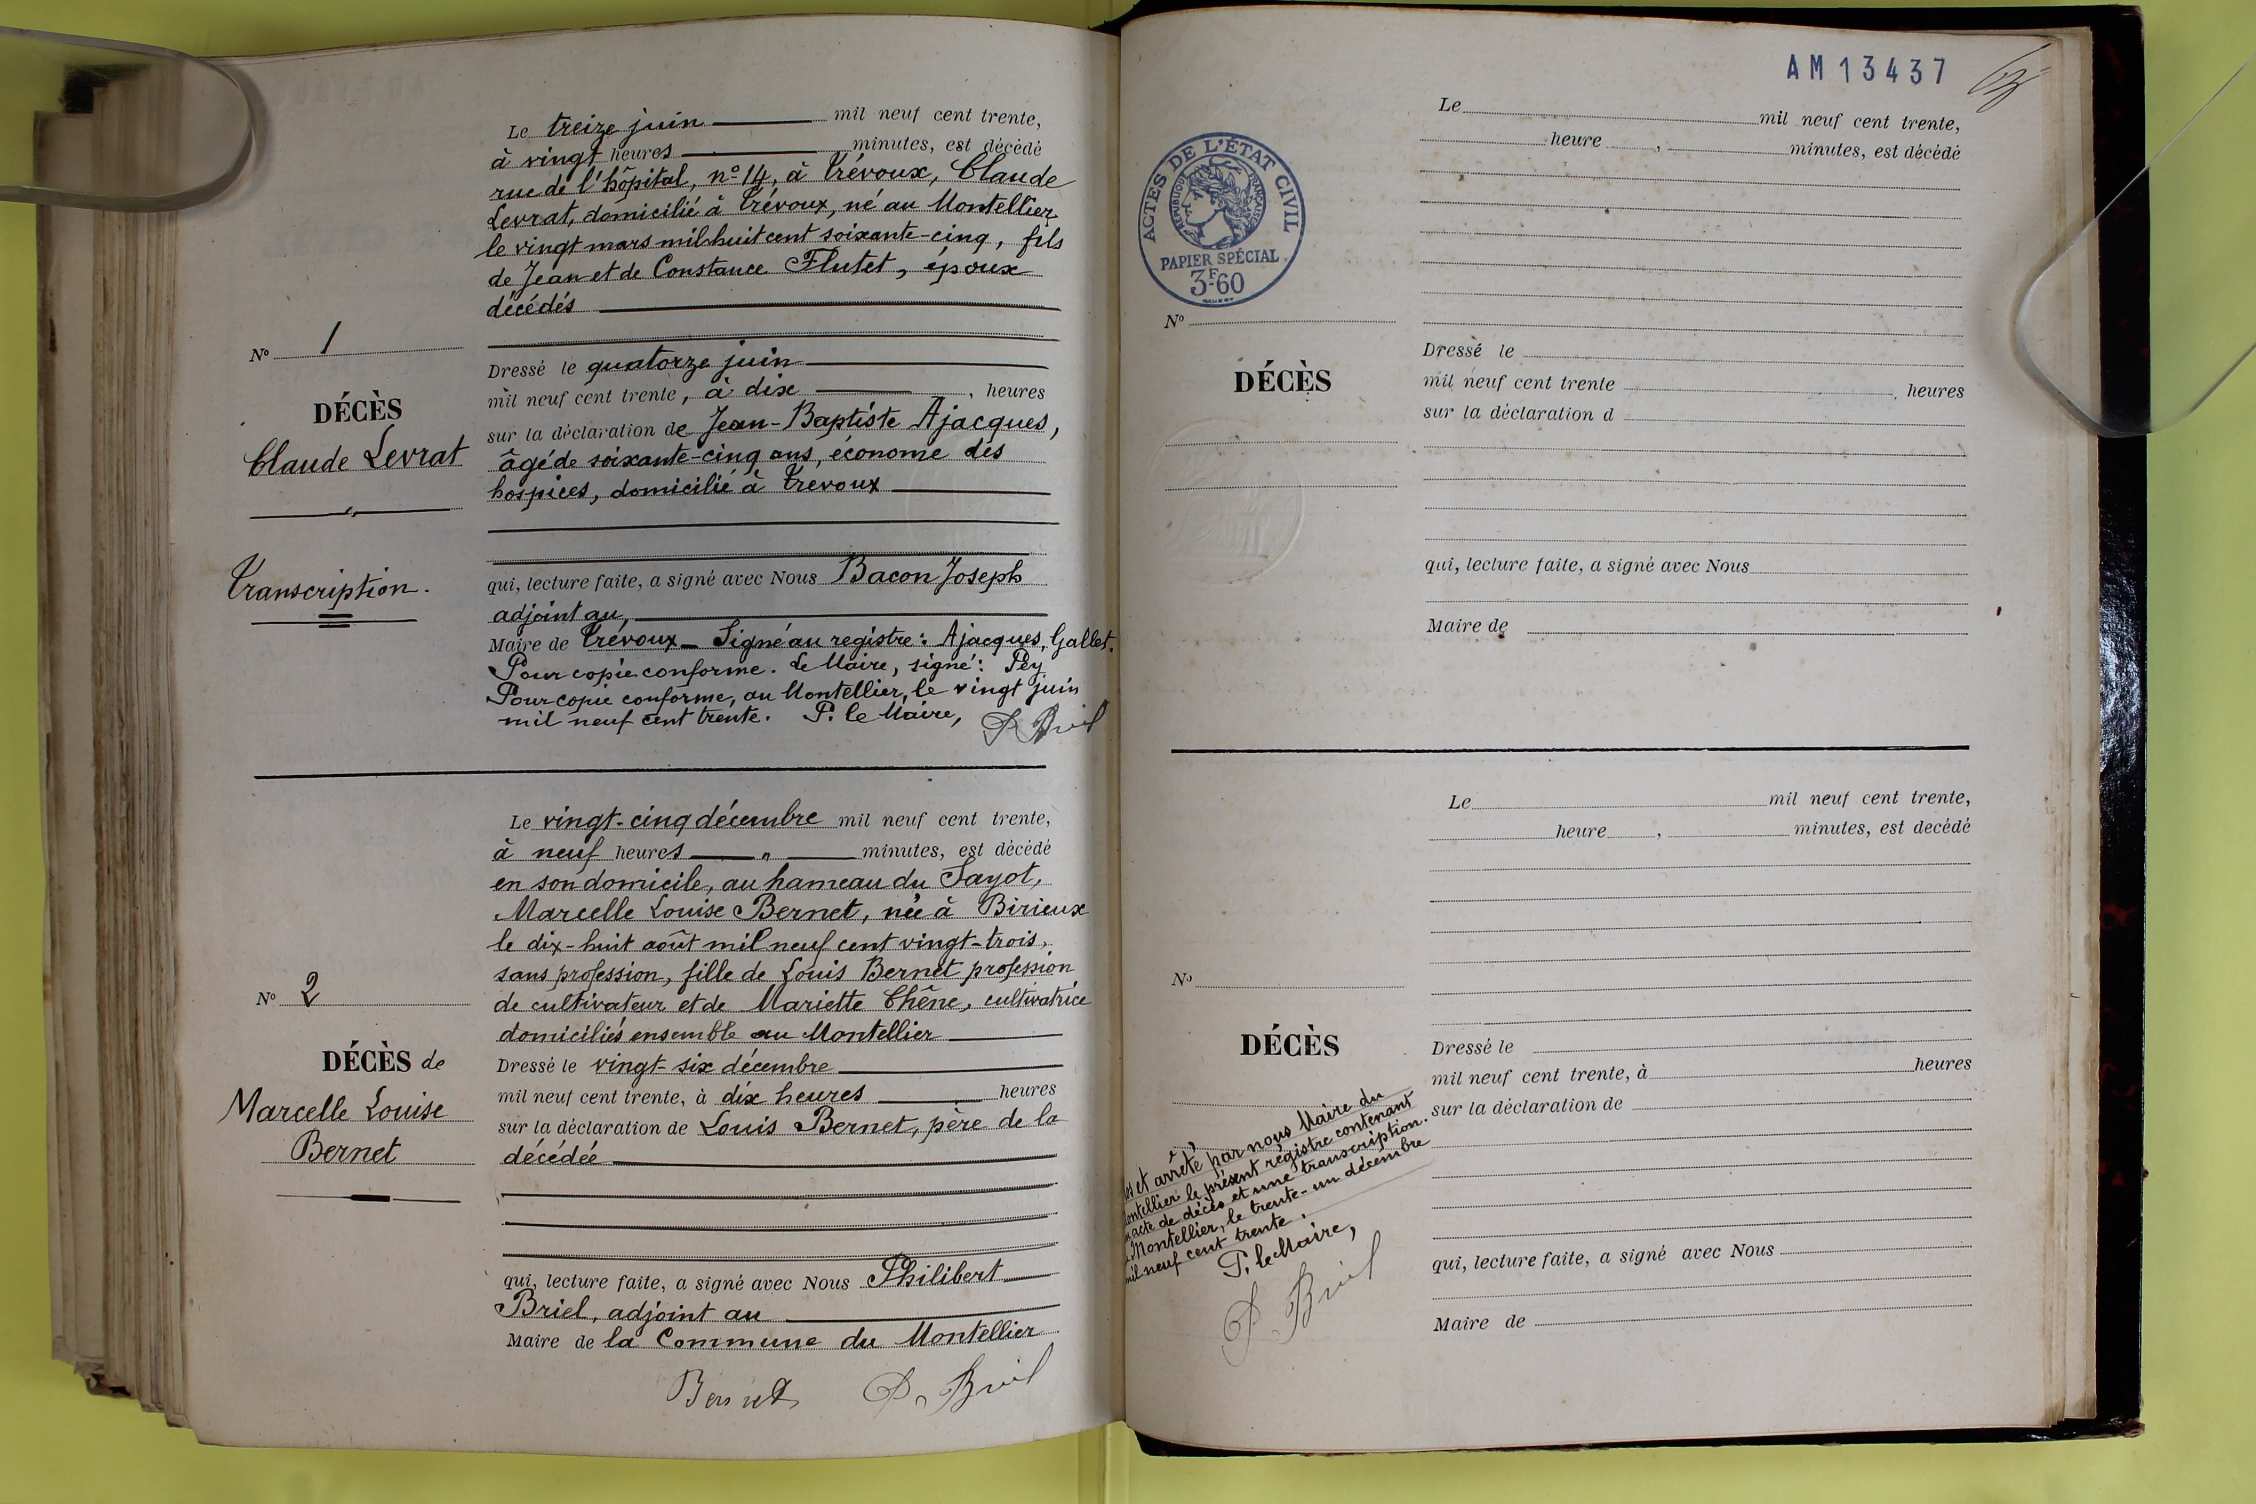 Le treize juin mil neuf cent trente,
à vingt heures minutes, est décédé
rue de l'hôpital, nº 14, à Trévoux, Claude
Levrat, domicilié à Trévoux, né au Montellier
le vingt mars mil huit cent soixante-cinq, fils
de Jean et de Constance Flutet, époux
décédés
Nº 1
DÉCÈS
Claude Levrat
Transcription.
Dressé le quatorze juin
mil neuf cent trente, à dix , heures
sur la déclaration de Jean-Baptiste Ajacques,
âgé de soixante-cinq ans, économe des
hospices, domicilié à Trévoux
qui, lecture faite, a signé avec Nous Bacon Joseph
adjoint au,
Maire de Trévoux _ Signé au registre: Ajacques, Gallet.
Pour copie conforme. Le Maire, signé: Pey
Pour copie conforme, au Montellier, le vingt juin
mil neuf cent trente. P. le Maire, P Briel
Le vingt-cinq décembre mil neuf cent trente,
à neuf heures " minutes, est décédé
en son domicile, au hameau du Sayot,
Marcelle Louise Bernet, née à Birieux
le dix-huit août mil neuf cent vingt-trois,
sans profession, fille de Louis Bernet profession
de cultivateur et de Mariette Chêne, cultivatrice
domiciliés ensemble au Montellier
Nº 2
DÉCÈS de
Marcelle Louise
Bernet
Dressé le vingt-six décembre
mil neuf cent trente, à dix heures heures
sur la déclaration de Louis Bernet, père de la
décédée
qui, lecture faite, a signé avec Nous Philibert
Briel, adjoint au
Maire de la Commune du Montellier
Bernet P. Briel
AM13437
ACTES DE L'ÉTAT CIVIL
RÉPUBLIQUE FRANÇAISE
PAPIER SPÉCIAL
3F60
Le mil neuf cent trente,
heure , minutes, est décédé
Nº
DÉCÈS
Dressé le
mil neuf cent trente , heures
sur la déclaration d
qui, lecture faite, a signé avec Nous
Maire de
Le mil neuf cent trente,
heure , minutes, est decédé
Nº
DÉCÈS
Dressé le
mil neuf cent trente, à heures
sur la déclaration de
qui, lecture faite, a signé avec Nous
Maire de
et arrêté par nous Maire du
Montellier le présent régistre contenant
acte de décès et une transcription.
Montellier, le trente-un décembre
mil neuf cent trente.
P. le Maire,
P. Briel